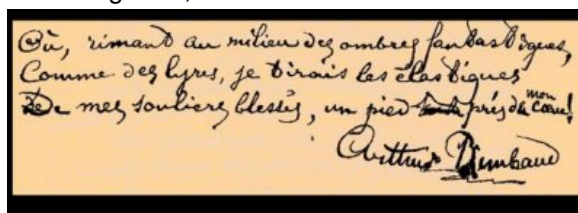 Où, rimant au milieu des ombres fantastiques,
Comme des lyres, je tirais les élastiques
De mes souliers blessés, un pied près de mon cœur!
Arthur Rimbaud